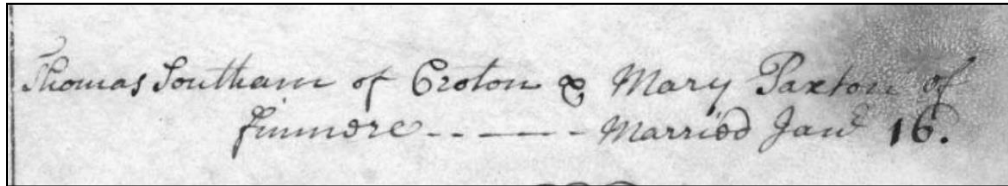 Thomas Southam of Croton & Mary Paxton of
finmere - - — - Married Janʳ 16.